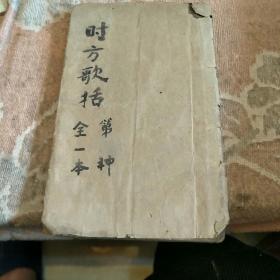 时方歌括
第一种
全一本